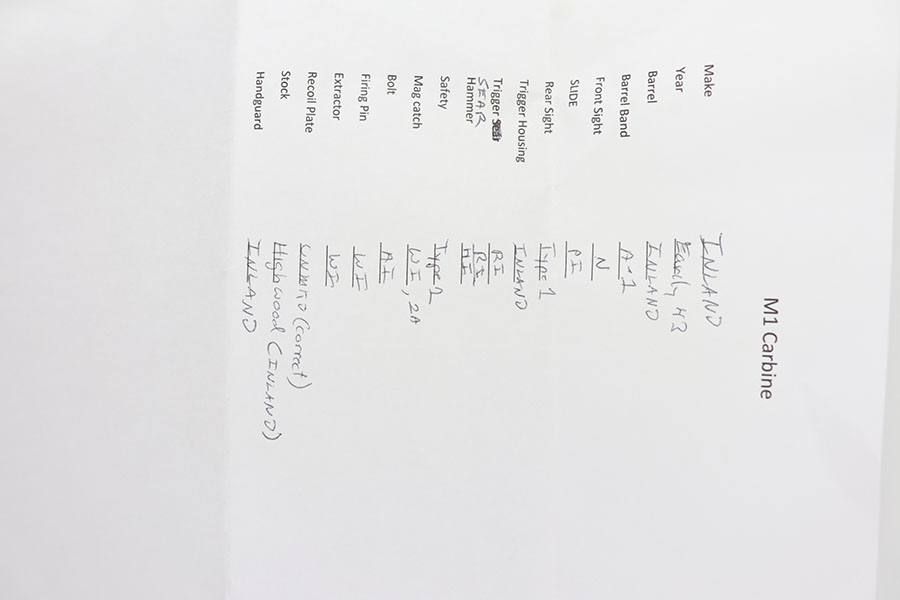 M1 Carbine
Make INLAND
Year Early 43
Barrel INLAND
Barrel Band A-1
Front Sight N
SLIDE PI
Rear Sight Type 1
Trigger Housing INLAND
Trigger RI
SEAR RI
Hammer HI
Safety Type
Mag catch WI, 2A
Bolt AI
Firing Pin WI
Extractor WI
Recoil Plate UNMKD (correct)
Stock Highwood (INLAND)
Handguard INLAND